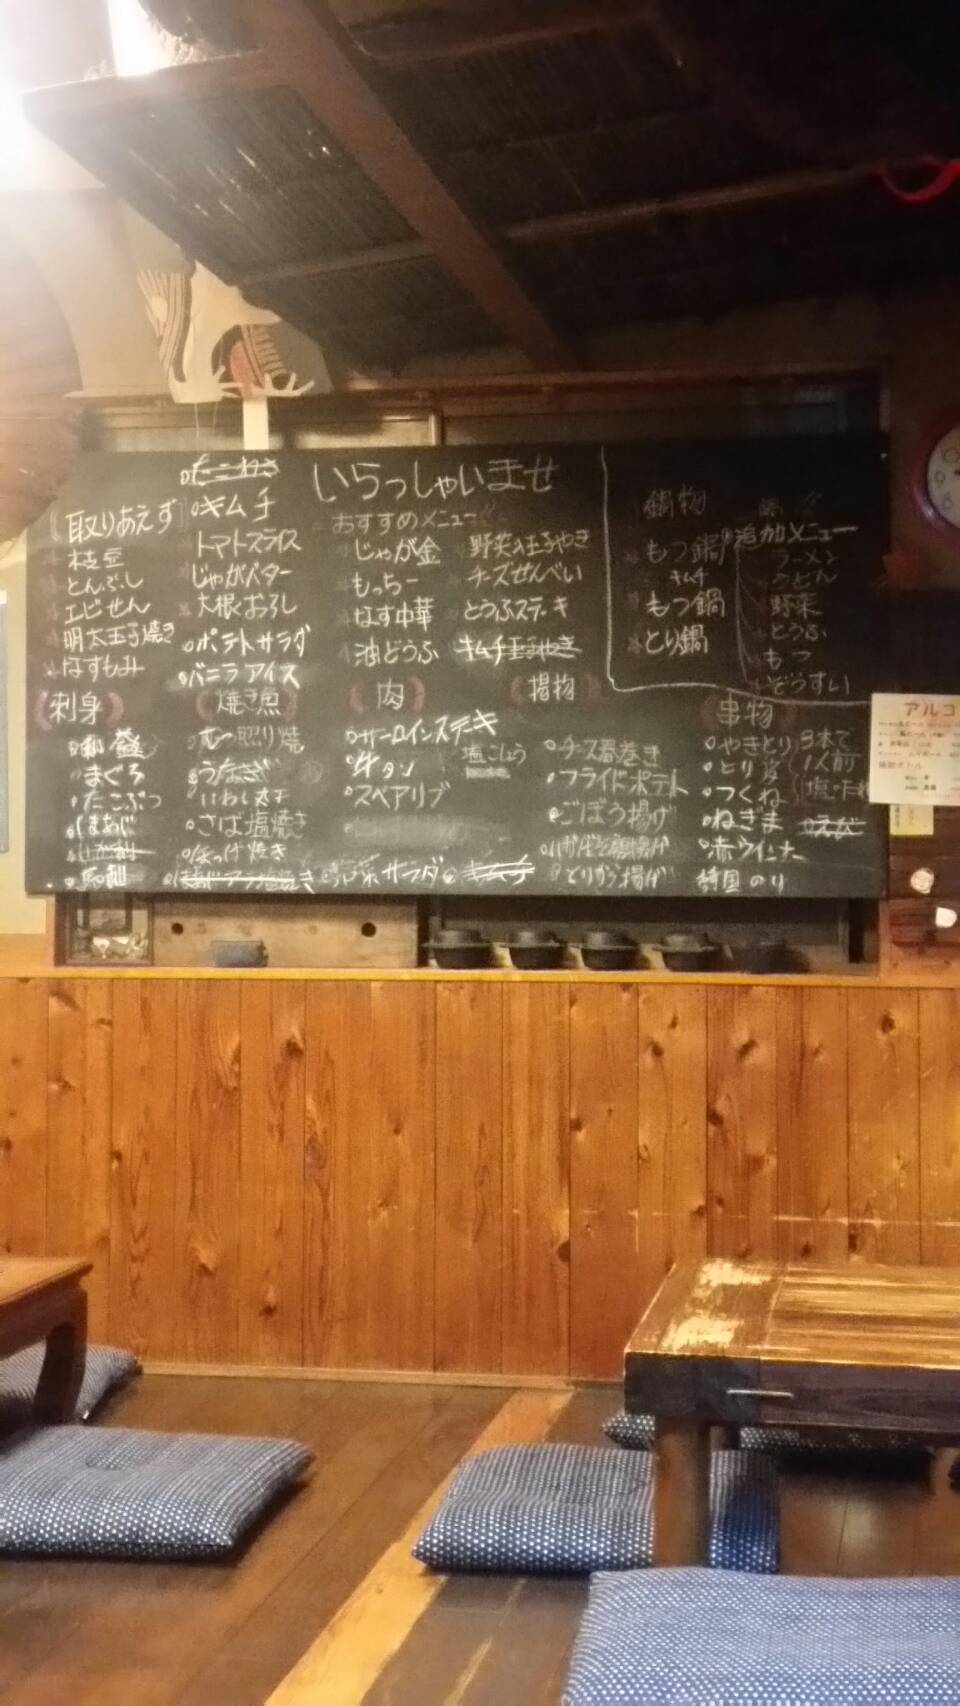 いらっしゃいませ
取りあえず
枝豆
とんぶし
エビせん
明太玉子焼き
はすもみ
キムチ
トマトスライス
じゃがバター
大根おろし
ポテトサラダ
バニラアイス
おすすめメニュー!!
じゃが金
もっちー
なす中華
油どうふ
野菜玉子やき
チーズせんべい
とうふステーキ
鍋物
もつ鍋
キムチ
もつ鍋
とり鍋
追加メニュー
ラーメン
うどん
野菜
とうふ
もつ
ぞうすい
刺身
まぐろ
たこぶつ
しまあじ
馬刺
焼き魚
照り焼
うなぎ
さば塩焼き
ほっけ焼き
肉
サーロインステーキ
牛タン
塩こしょう
スペアリブ
サラダ
揚物
チーズ春巻き
フライドポテト
ごぼう揚げ
とりから揚げ
串物
やきとり
とり皮
つくね
ねぎま
赤ウインナー
韓国のり
3本で
1人前
塩・たれ
アルコ